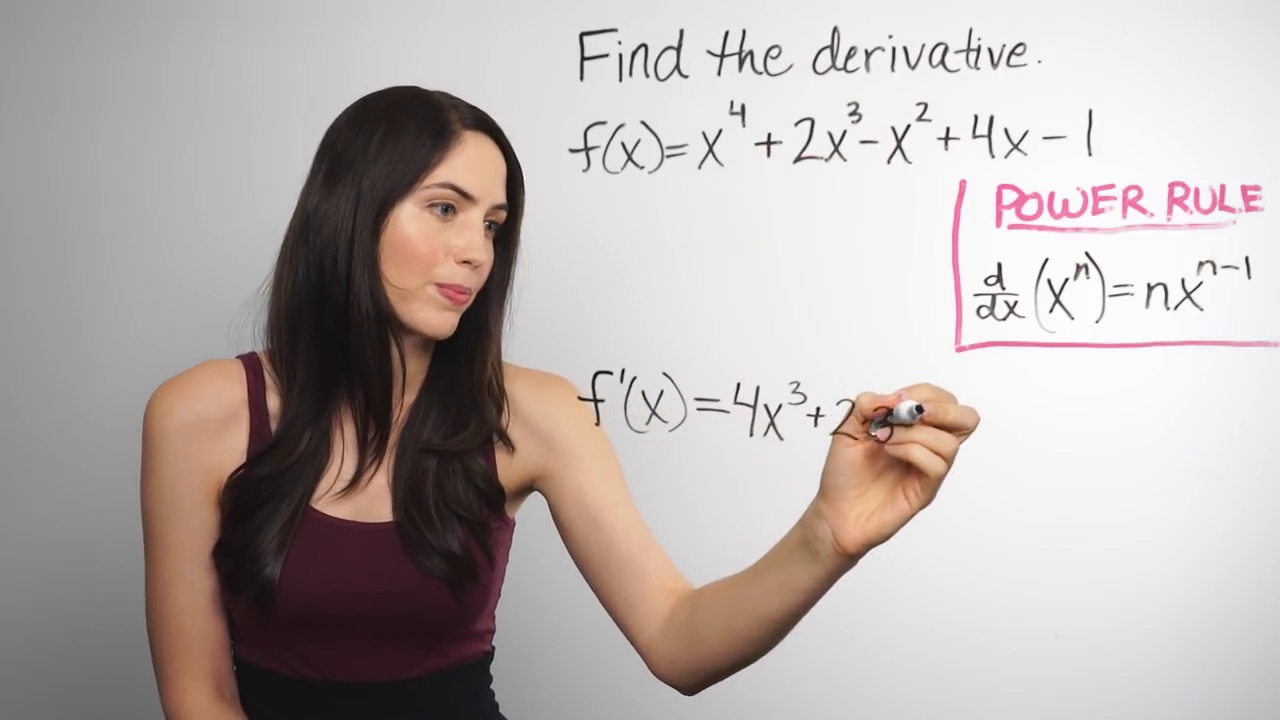 Find the derivative.
f(x)=x⁴+2x³-x²+4x-1
POWER RULE
d/dx (xⁿ)=nxⁿ⁻¹
f'(x)=4x³+2·3